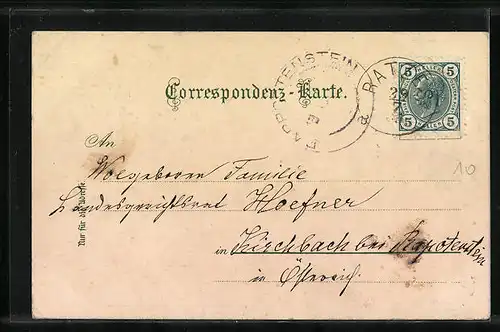 RAPPOTTENSTEIN
RAT
5 5
5 5
Correspondenz-Karte.
10
An
Wolgeboren Familie
Landesgerichtsrat Hoefner
in Kirchbach bei Rapotenstein
in Östreich
Nur für die Adresse.